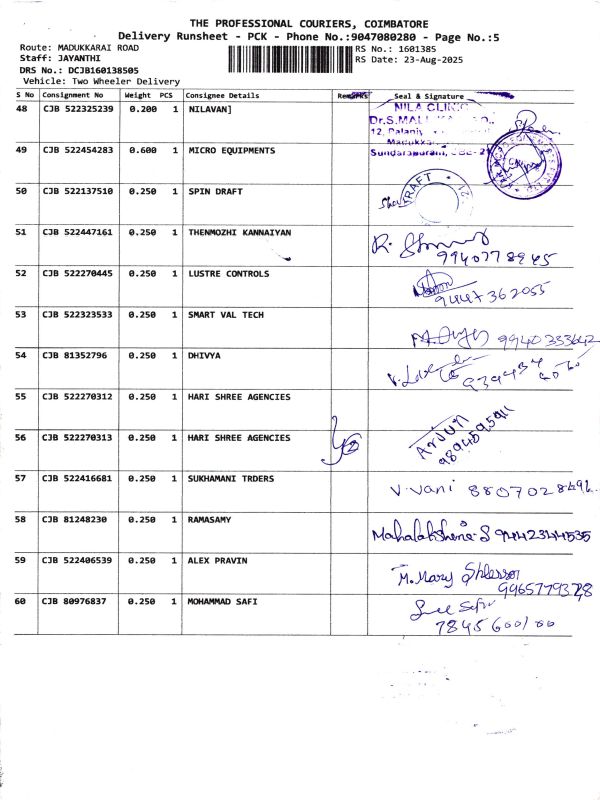 THE PROFESSIONAL COURIERS, COIMBATORE
Delivery Runsheet - PCK - Phone No.:9047080280 - Page No.:5
Route: MADUKKARAI ROAD
RS No.: 1601385
Staff: JAYANTHI
RS Date: 23-Aug-2025
DRS No.: DCJB160138505
Vehicle: Two Wheeler Delivery
S No Consignment No Weight PCS Consignee Details Remarks Seal & Signature
48 CJB 522325239 0.200 1 NILAVAN]
NILA CLINIC
Dr.S.
12, Palani
Madukka
Sundarapuram,
49 CJB 522454283 0.600 1 MICRO EQUIPMENTS
50 CJB 522137510 0.250 1 SPIN DRAFT
51 CJB 522447161 0.250 1 THENMOZHI KANNAIYAN
R.
9940778945
52 CJB 522270445 0.250 1 LUSTRE CONTROLS
9447362055
53 CJB 522323533 0.250 1 SMART VAL TECH
9940333642
54 CJB 81352796 0.250 1 DHIVYA
55 CJB 522270312 0.250 1 HARI SHREE AGENCIES
56 CJB 522270313 0.250 1 HARI SHREE AGENCIES
Arjun
9894595911
57 CJB 522416681 0.250 1 SUKHAMANI TRDERS
V. Vani
58 CJB 81248230 0.250 1 RAMASAMY
9442344535
59 CJB 522406539 0.250 1 ALEX PRAVIN
M. Mary
60 CJB 80976837 0.250 1 MOHAMMAD SAFI